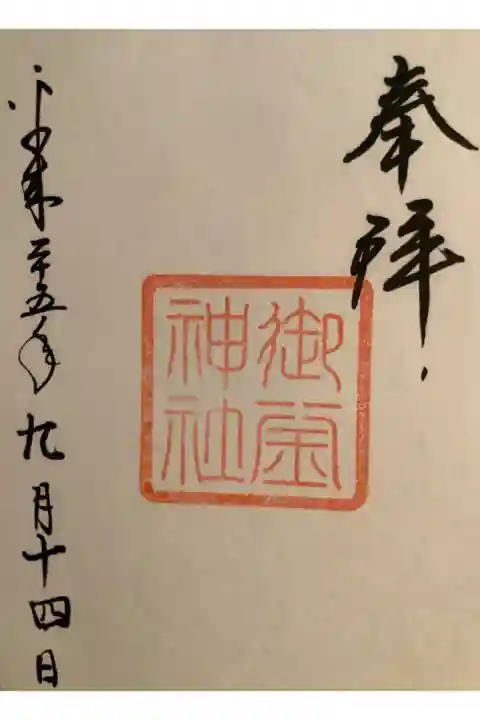 奉拝
御
神社
平成二十五年九月十四日